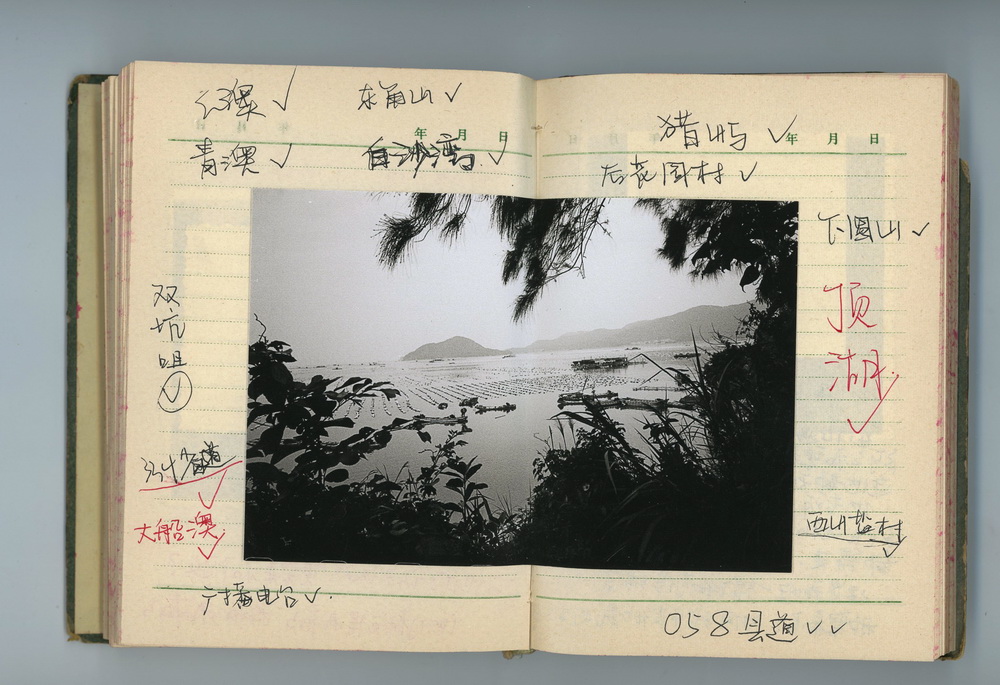 云澳✓ 东角山✓
年 月 日
青澳✓ 白沙湾✓
猎屿✓
年 月 日
后花园村✓
下圆山✓
双
坑
咀
✓
顶
澎
✓
大船澳
✓
西山岩村
✓
广播电台✓
058县道✓✓